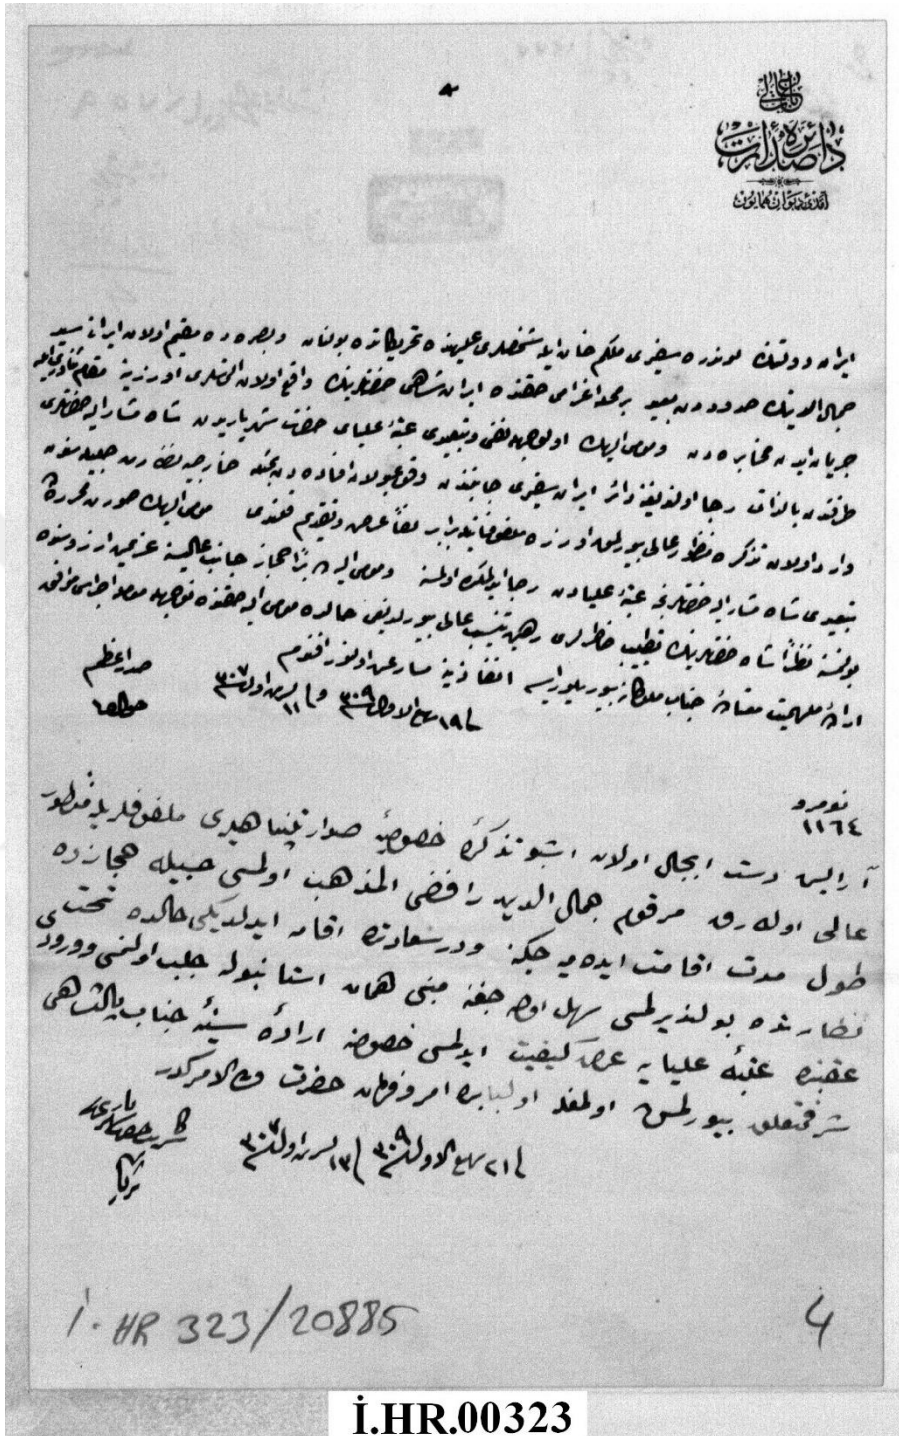 باب عالی
دائرۀ صدارت
آمدئ دیوان همایون
ایران دولتنك لوندره سفیری ملكم خان ایله شخصلری علیهنده تحریكاتده بولنان و بصره ده مقیم اولان ایرانی سید
جمال الدینك حدوددن تبعید بر محله اعزامی حقنده ایران شاهی حضرتلرینك واقع اولان التماسلری اوزرینه
جریان ایدن مخابره دن ومومی الیهك اولوجهله نفی وتبعیدی عتبۀ علیای حضرت شهریاریدن شاه مشار الیه حضرتلری
طرفندن بالذات رجا اولندیغنه دائر ایران سفیری جانبندن وقوعبولان افاده دن بحثله خارجیه نظارت جلیله سندن
وارد اولان تذكره منظور عالی بیورلمق اوزره ملفوفاتیله برابر لفاً عرض وتقدیم قلندی مومی الیهك صورت محرره ده
تبعیدی شاه مشار الیه حضرتلری عتبۀ علیادن رجا ایلمكده اولمسنه ومومی الیه براً حجاز جانب عالیسنه عزیمتی آرزوسنده
بولنمسنه نظراً شاه حضرتلرینك تطییب خاطرلری رهین تنسیب عالی بیورلدیغی حالده مومی الیه حقنده اولوجهله معامله اجراسی موافق
ارادۀ ملهمیت معتادۀ جناب ملوكانه بیوریلور ایسه انفاذینه مسارعت اولنور افندم
فی ١٩ ربیع الاول سنه ٣٠٩ وفی ١١ تشرین اول سنه ٣٠٧
صدر اعظم
جواد
نومرو
١١٦٤
آرایش دست ابجال اولان اشبو تذكرۀ خصوصیۀ صدارتپناهیلری ملفوفلریله منظور
عالی اوله رق مرقوم جمال الدین رافضی المذهب اولمسی حسبیله حجازده
طول مدت اقامت ایده میه جكنه ودرسعادتده اقامه ایدلدیكی حالده تحت
نظارتده بولندیرلمسی سهل اوله جغنه مبنی همان استانبوله جلب اولنمسی وورودی
عقبنده عتبۀ علیایه عرض كیفیت ایدلمسی خصوصنه ارادۀ سنیۀ جناب پادشاهی
شرفمتعلق بیورلمش اولمغله اولبابده امر وفرمان حضرت ولی الامركدر
فی ٢١ ربیع الاول سنه ٣٠٩ فی ١٣ تشرین اول سنه ٣٠٧
سر كاتب حضرت شهریاری
ثریا
İ. HR 323/20885
4
İ.HR.00323